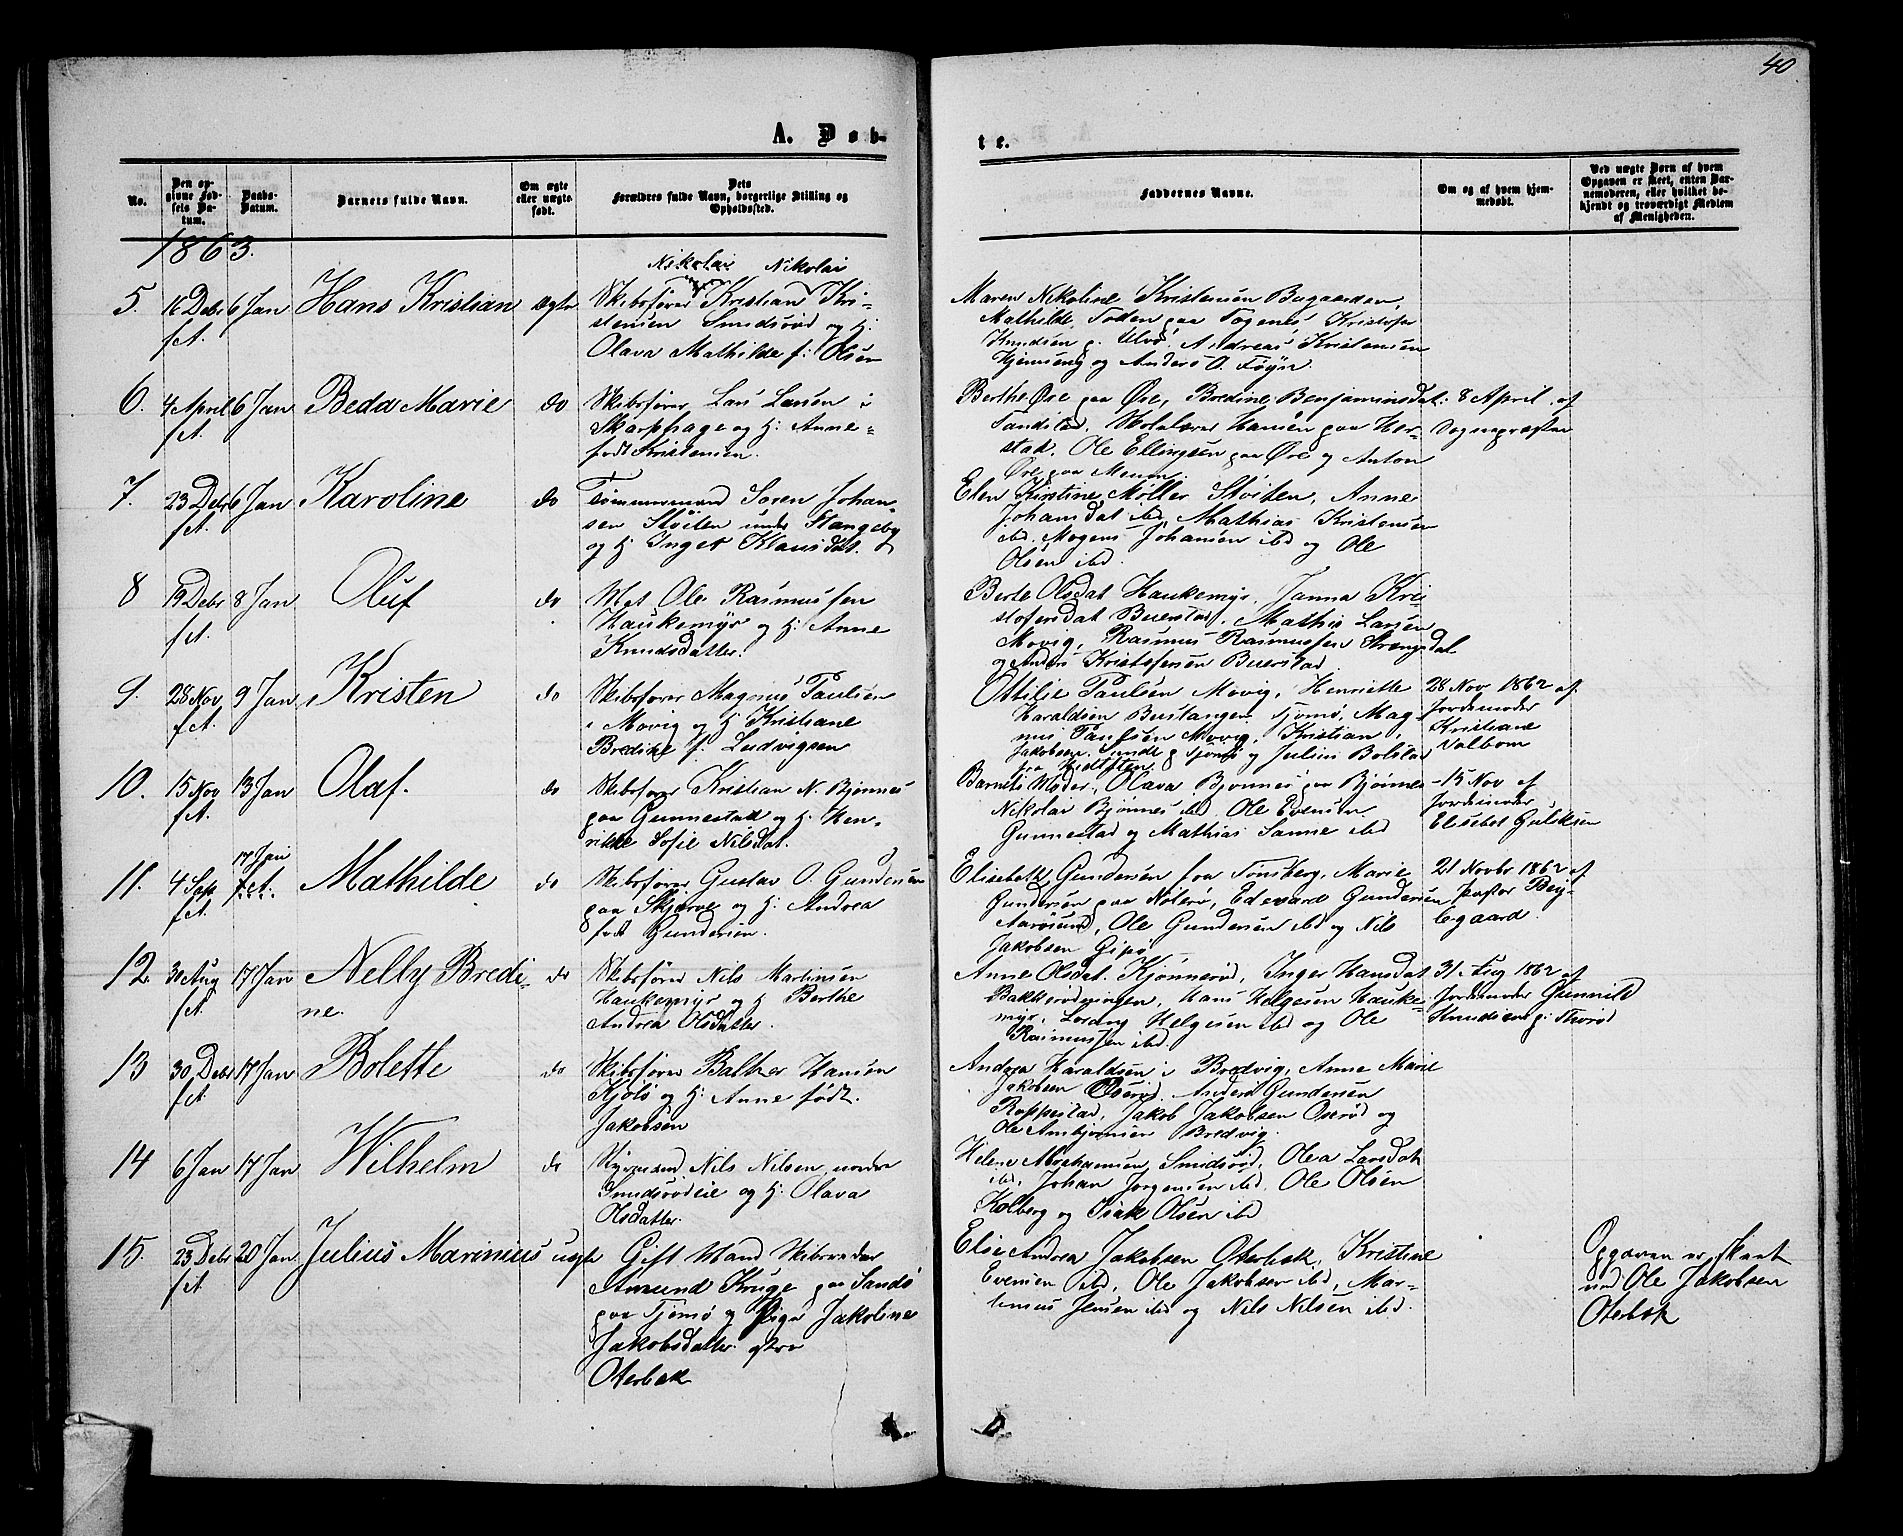 40
A. Døb-
te.
No.
Den op-
givne Fød-
sels Da-
tum.
Daabs-
Datum.
Barnets fulde Navn.
Om ægte
eller uægte
født.
Dets
Forældres fulde Navn, borgerlige Stilling og
Opholdssted.
Faddernes Navne.
Om og af hvem hjem-
medøbt.
Ved uægte Børn af hvem
Opgaven er skeet, enten Bar-
nemoderen, eller hvilket be-
kjendt og troværdigt Medlem
af Menigheden.
1863.
5. 16 Debr 6 Jan Hans Kristian ægte
f.A.
Nikolai Nikolai
Skibsfører Kristian Kri-
stensen Smidsrød og H:
Olava Mathilde f: Olsen
Maren Nikoline Kristensen Bugaarden,
Mathilde Foden paa Togenes, Kristofer
Knudsen p. Ulvø, Andreas Kristensen
Hjemseng og Anders O. Føyn.
6. 4 April 6 Jan Beda Marie do
f.A.
Skibsfører Lars Larsen i
Skarphage og H: Anne
født Kristensen.
Berthe Øre paa Øre, Bredine Benjaminsdat:
Sandstad, Skolelærer Hansen paa Her-
stad, Ole Ellingsen paa Øre og Anton
Øre paa Meum
8 April af
Sognepræsten
7. 23 Debr 6 Jan Karoline do
f.A.
Tømmermand Søren Johan-
sen Støiten under Stangeby
og H: Inger Klausdat.
Elen Kirstine Møller Støiten, Anne
Johansdat ibd, Mathias Kristensen
ibd. Mogens Johansen ibd og Ole
Olsen ibd.
8 19 Debr 8 Jan Oluf do
f.A.
Mat. Ole Rasmussen
Haukemyr og H: Anne
Knudsdatter.
Berte Olsdat Haukemyr, Janna Kri-
stofersdat Buerstad, Mathis Larsen
Movig, Rasmus Rasmussen Strengsdal
og Anders Kristofersen Buerstad
9. 28 Nov 9 Jan Kristen do
f.A.
Skibsfører Magnus Paulsen
i Movig og H: Kristiane
Bredine f: Ludvigsen
Ottilie Paulsen Movig, Henriette
Haraldsen Bustangen Tjømø, Mag-
nus Paulsen Movig, Kristian
Jakobsen Sunde p Tjømø og Julius Bolstad
28 Nov 1862 af
Jordemoder
Kristiane
Valbom
10. 15 Nov 13 Jan Olaf. do
f.A.
Skibsfører Kristian N. Bjønnes
paa Gunnestad og H: Hen-
rikke Sofie Nilsdat.
Barnets Moder, Olava Bjønnes paa Bjønnes
Nikolai Bjønnes ibd, Ole Evensen
Gunnestad og Mathias Sanne ibd
- 15 Nov af
Jordemoder
Elisabet Guliksen
11. 4 Sept 17 Jan Mathilde do
f.A.
Skibsfører Gustav O. Gundersen
paa Skjerve og H: Andrea
født Gundersen.
Elisabeth Gundersen fra Tønsberg, Marie
Gundersen paa Nøterø, Edevard Gundersen
Aarøsund, Ole Gundersen ibd og Nils
Jakobsen Gipø
21 Novbr 1862 af
Pastor Bey-
legaard.
12. 30 Aug 17 Jan Nelly Bredi- do
f.A. ne.
Skibsfører Nils Martinsen
Haukemyr og H: Berthe
Andrea Olsdatter.
Anne Olsdat. Kjønnerød, Inger Hansdat
Bakkerødningen, Hans Helgesen Hauke-
myr, Lorang Helgesen ibd og Ole
Rasmussen ibd.
31 Aug 1862 af
Jordemoder Gunnild
Knudsen p: Thorød
13 30 Debr 17 Jan Bolette do
f.A.
Skibsfører Balther Hansen
Kjøls og H: Anne født.
Jakobsen
Andrea Haraldsen i Bredvig, Anne Marie
Jakobsen Oserød, Anders Gundersen
Roppestad, Jakob Jakobsen Oserød og
Ole Ambjørnsen Bredvig.
14 6 Jan 17 Jan Wilhelm do
Sømand Nils Nilsen under
Smidsrødeie og H: Olava
Olsdatter.
Helene Abrahamsen, Smidsrød, Olea Larsdat
ibd, Johan Jørgensen ibd, Ole Olsen
Kolberg og Isak Olsen ibd
15. 23 Debr 20 Jan Julius Marinius uægte
f.A.
Gift Mand Skibsreder
Amund Kruge paa Sandø
paa Tjømø og Pige Jakoline
Jakobsdatter østre
Oterbek
Elise Andrea Jakobsen Oterbek, Kristine
Evensen ibd, Ole Jakobsen ibd, Mar-
tinius Jensen ibd og Nils Nilsen ibd.
Opgaven er skeet
ved Ole Jakobsen
Oterbek